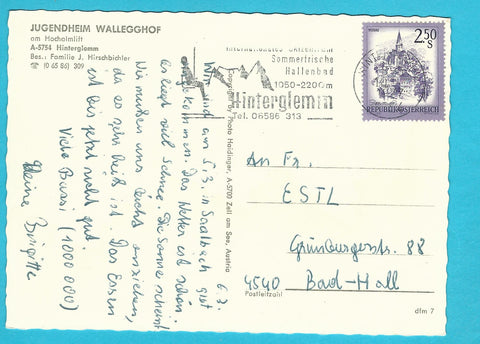 JUGENDHEIM WALLEGGHOF
am Hochalmlift
A-5754 Hinterglemm
Bes.: Familie J. Hirschbichler
☎ (0 65 86) 309
6.3.
Wir sind am 5.3. in Saalbach gut
angekommen. Das Wetter ist schön.
Es liegt viel Schnee. Die Sonne scheint
Wir müßen uns leicht anziehen,
da es sehr heiß ist. Das Essen
ist bis jetzt recht gut.
Viele Bussi (1000 000)
Brigitte
Copyright by Photo Haidinger, A-5700 Zell am See, Austria
Sommerfrische
Hallenbad
1050-2200m
Hinterglemm
Tel. 06586 313
2.50
S
REPUBLIK ÖSTERREICH
An Fr.
ESTL
Grünburgerstr. 88
4540 Bad-Hall
Postleitzahl
dfm 7